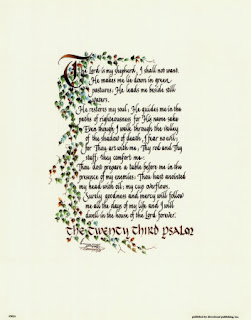 The Lord is my shepherd, I shall not want.
He makes me lie down in green
pastures; He leads me beside still
waters.
He restores my soul; He guides me in the
paths of righteousness for His name sake
Even though I walk through the valley
of the shadow of death, I fear no evil;
for Thou art with me; Thy rod and Thy
staff, they comfort me.
Thou dost prepare a table before me in the
presence of my enemies; Thou hast anointed
my head with oil; my cup overflows.
Surely goodness and mercy will follow
me all the days of my life and I will
dwell in the house of the Lord forever.
The Twenty Third Psalm